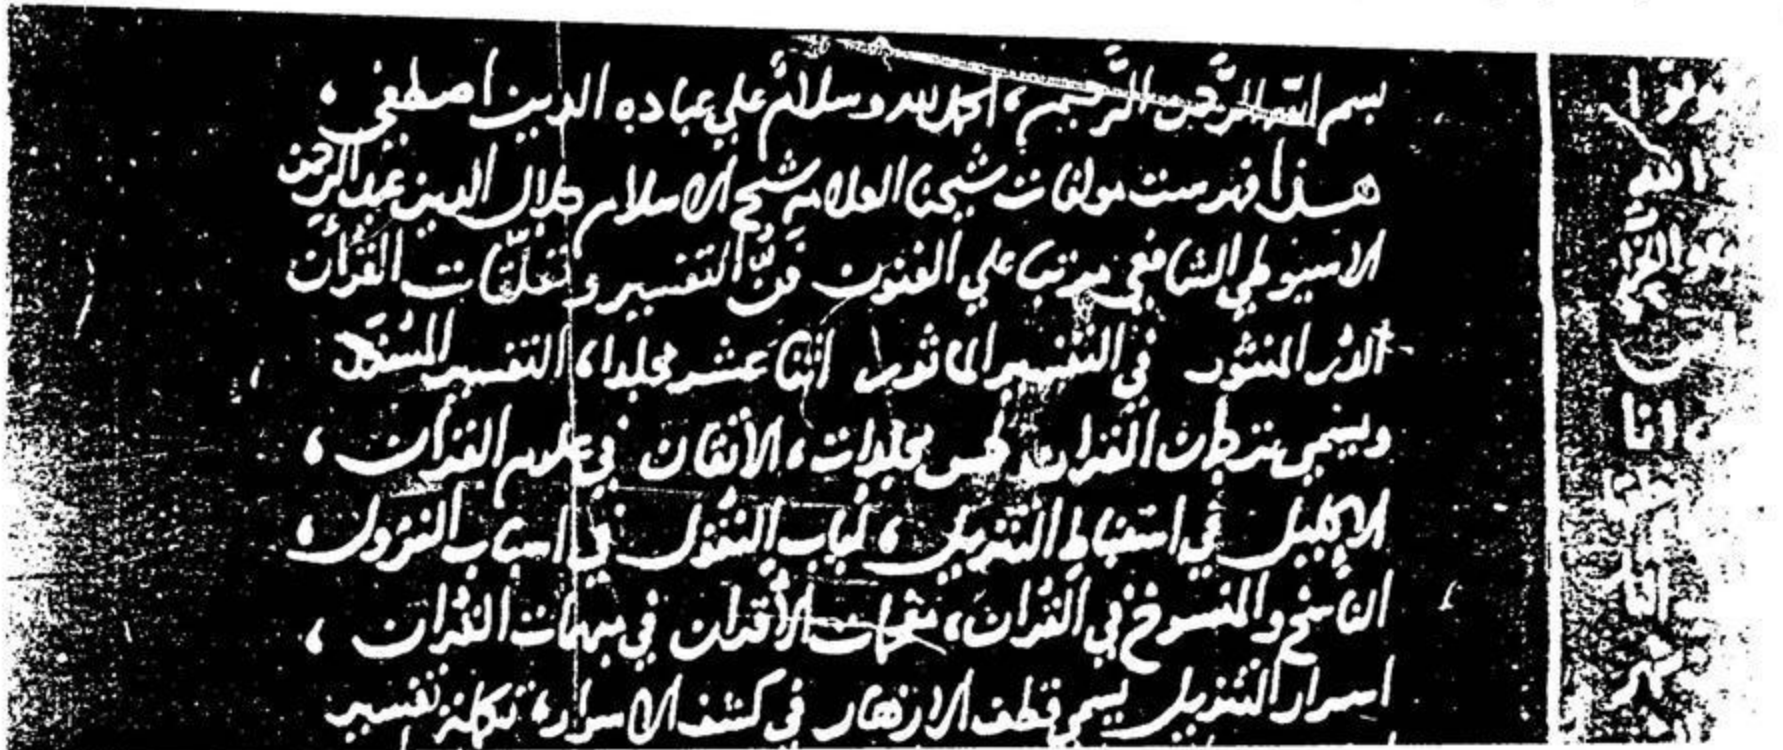 بسم الله الرَّحمن الرَّحيم، الحمد لله وسلامٌ علي عباده الدين اصطفي،
هذا فهرست مولفات شيخنا العلامه شيخ الاسلام جلال الدين عبد الرحمن
الاسيوطي الشافعي مرتبا علي الفنون فنّ التفسير وتعلّقات القرآن
الدر المنثور في التفسير الماثور اثنا عشر مجلدا، التفسير المسند
ويسمي ترجمان القران خمس مجلدات، الاتقان في علوم القرأن،
الاكليل في استنباط التنزيل، لباب النقول في اسباب النزول،
الناسخ والمنسوخ في القران، مفحمات الأقران في مبهمات القران،
اسرار التنزيل يسمي قطف الازهار في كشف الاسرار، تكملة تفسير
الله
انا